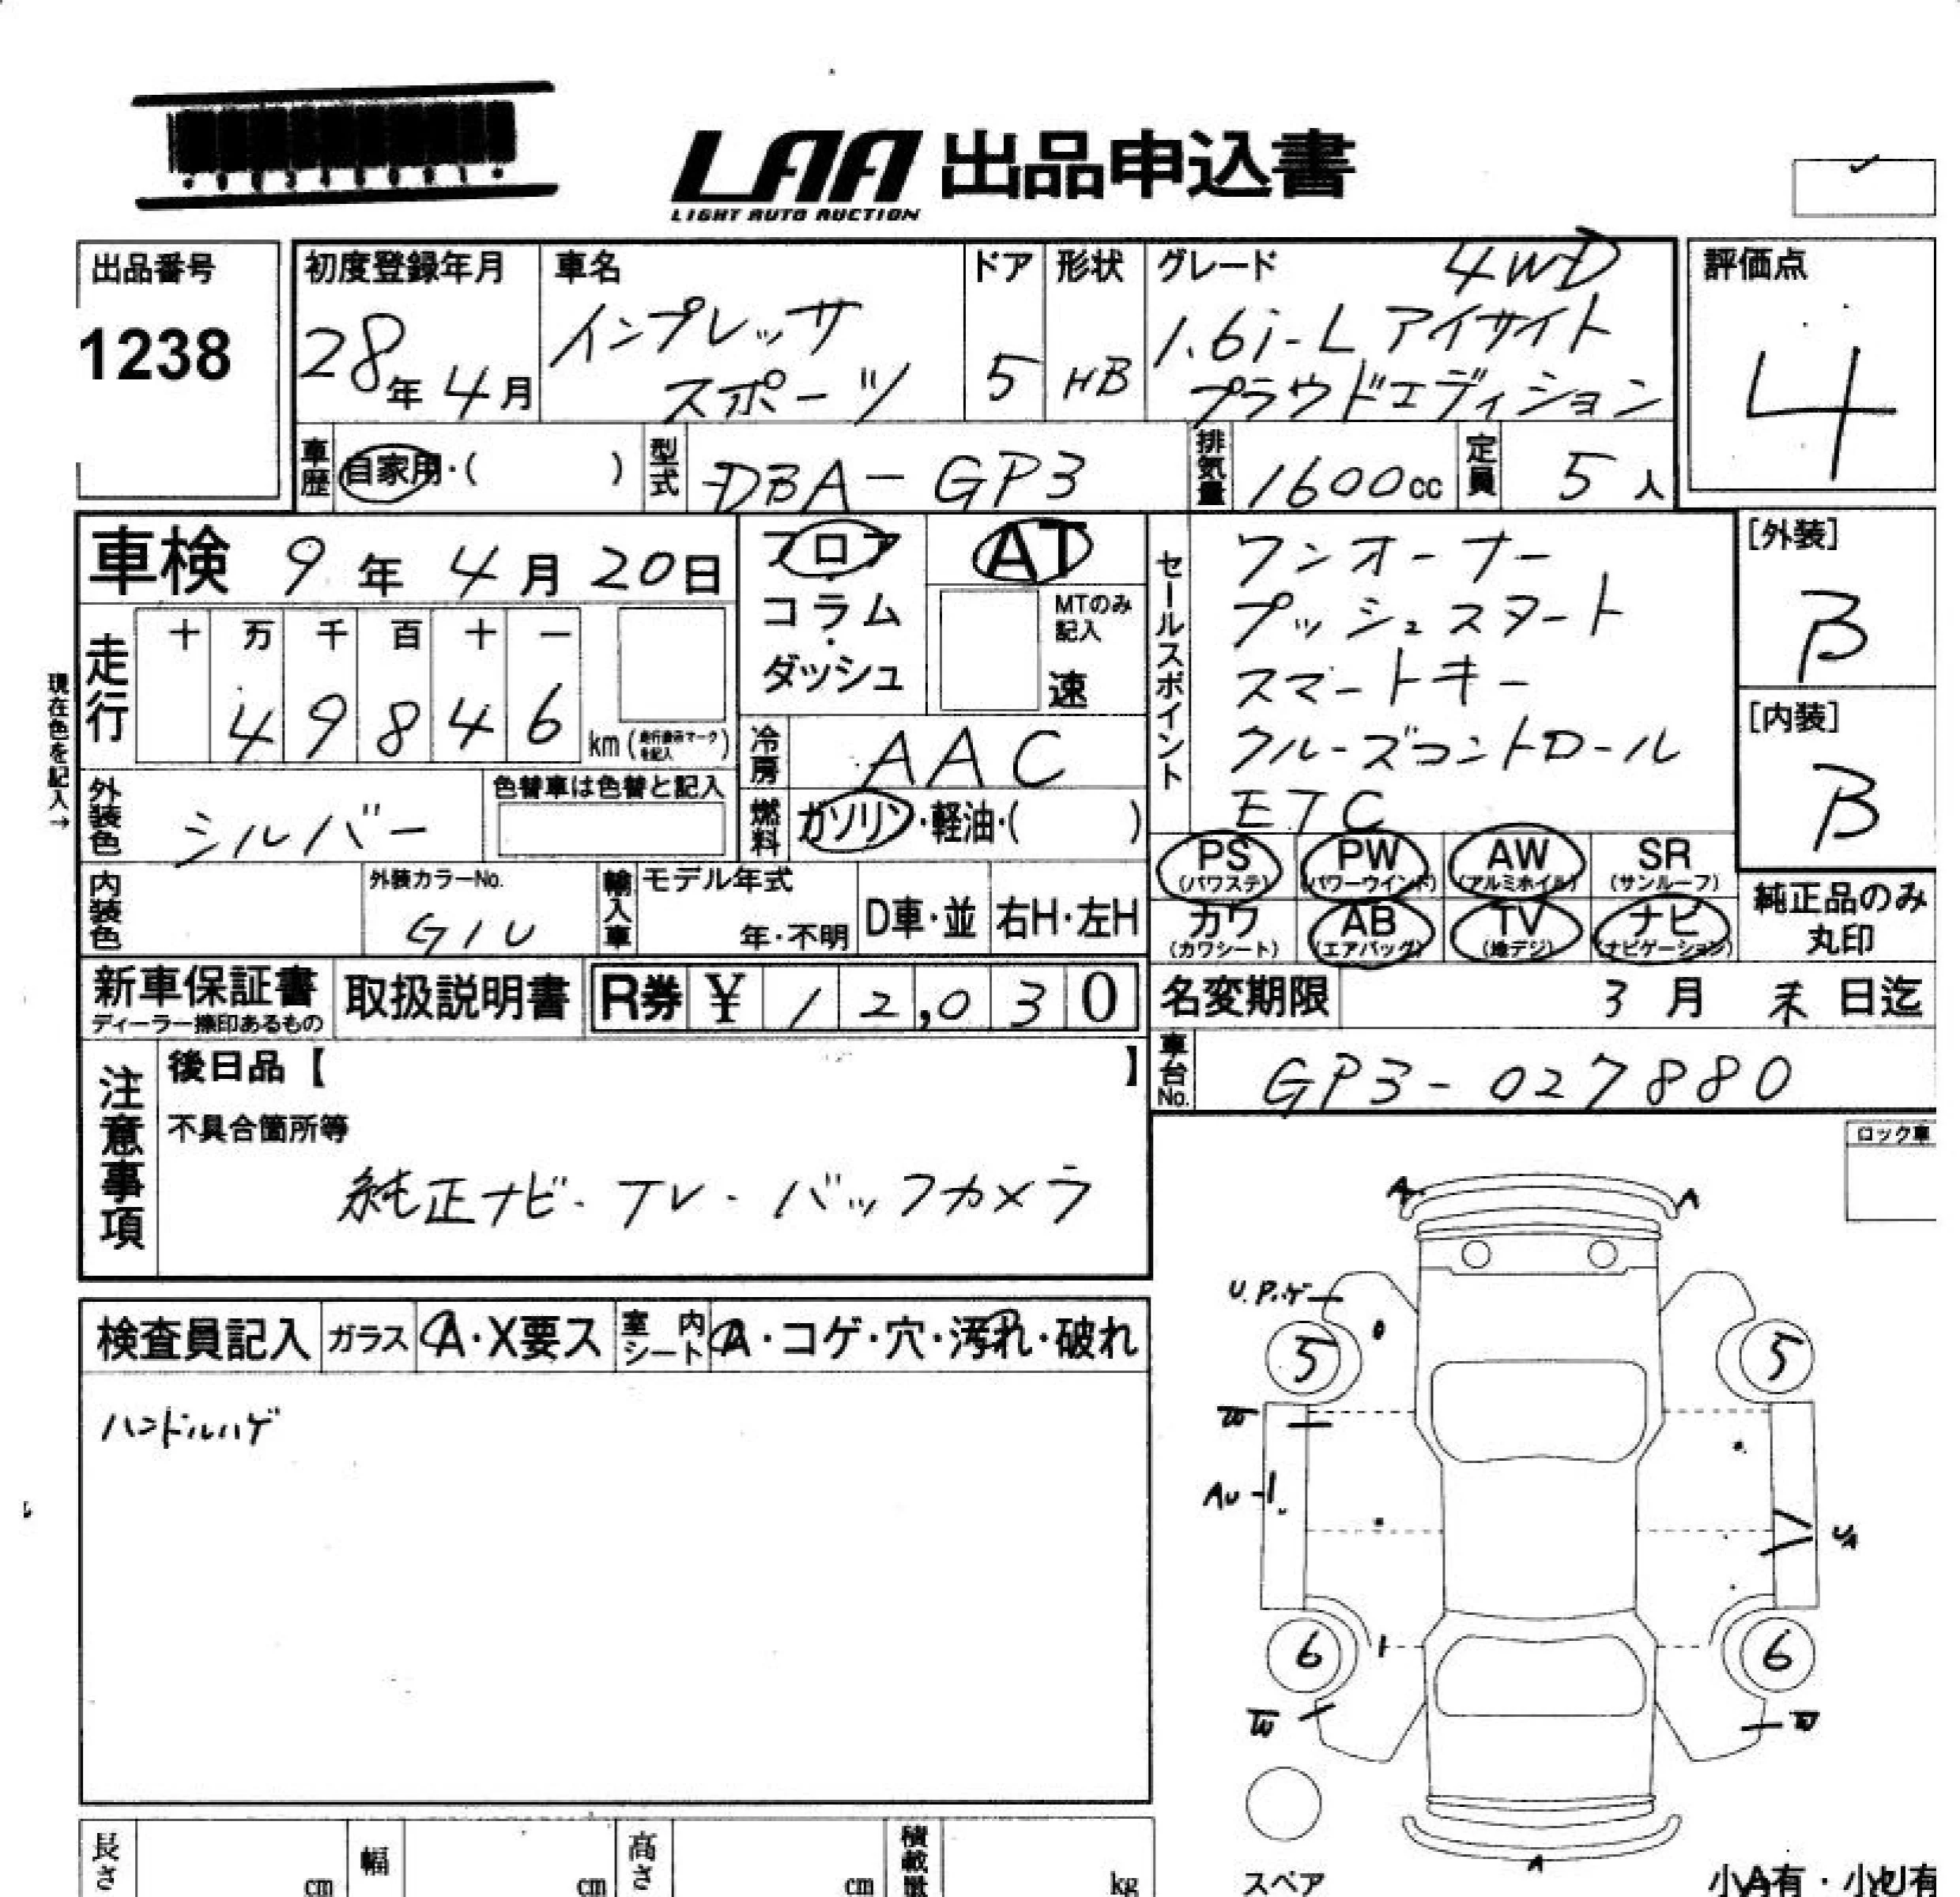 LAA 出品申込書
LIGHT AUTO AUCTION
出品番号
1238
初度登録年月
28年 4月
車名
インプレッサ
スポーツ
ドア
5
形状
HB
グレード 4WD
1.6i-L アイサイト
プラウドエディション
評価点
4
車歴 自家用・( )
型式 DBA-GP3
排気量 1600cc
定員 5人
車検 9年 4月 20日
フロア
コラム
・
ダッシュ
AT
MTのみ
記入
速
セールスポイント
ワンオーナー
プッシュスタート
スマートキー
クルーズコントロール
ETC
[外装]
B
[内装]
B
現在色を記入→
走行
十 万 千 百 十 一
4 9 8 4 6 km (走行表示マークを記入)
冷房 AAC
外装色 シルバー
色替車は色替と記入
燃料 ガソリン・軽油・( )
PS (パワステ) PW (パワーウインド) AW (アルミホイル) SR (サンルーフ)
カワ (カワシート) AB (エアバッグ) TV (地デジ) ナビ (ナビゲーション)
純正品のみ
丸印
内装色
外装カラーNo.
G1U
輸入車
モデル年式
年・不明
D車・並 右H・左H
新車保証書
ディーラー捺印あるもの
取扱説明書
R券 ¥ 12,030
名変期限 3月 末日迄
車台No. GP3-027880
注意事項
後日品【 】
不具合箇所等
純正ナビ・TV・バックカメラ
ロック車
A A
U.P.ハゲ
5 5
W
AU
UA
6 6
W W
A
検査員記入 ガラス A・X要ス 室内シート A・コゲ・穴・汚れ・破れ
ハンドルハゲ
長さ cm 幅 cm 高さ cm 積載量 kg
スペア
小A有・小U有